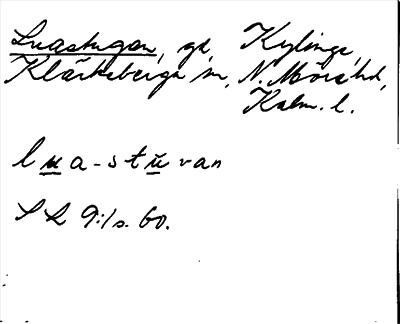 Luastugan, gd, Kylinge,
Kläckeberga sn, N. Möre hd,
Kalm. l.
lua-stu̅van
S L 9:1 s. 60.